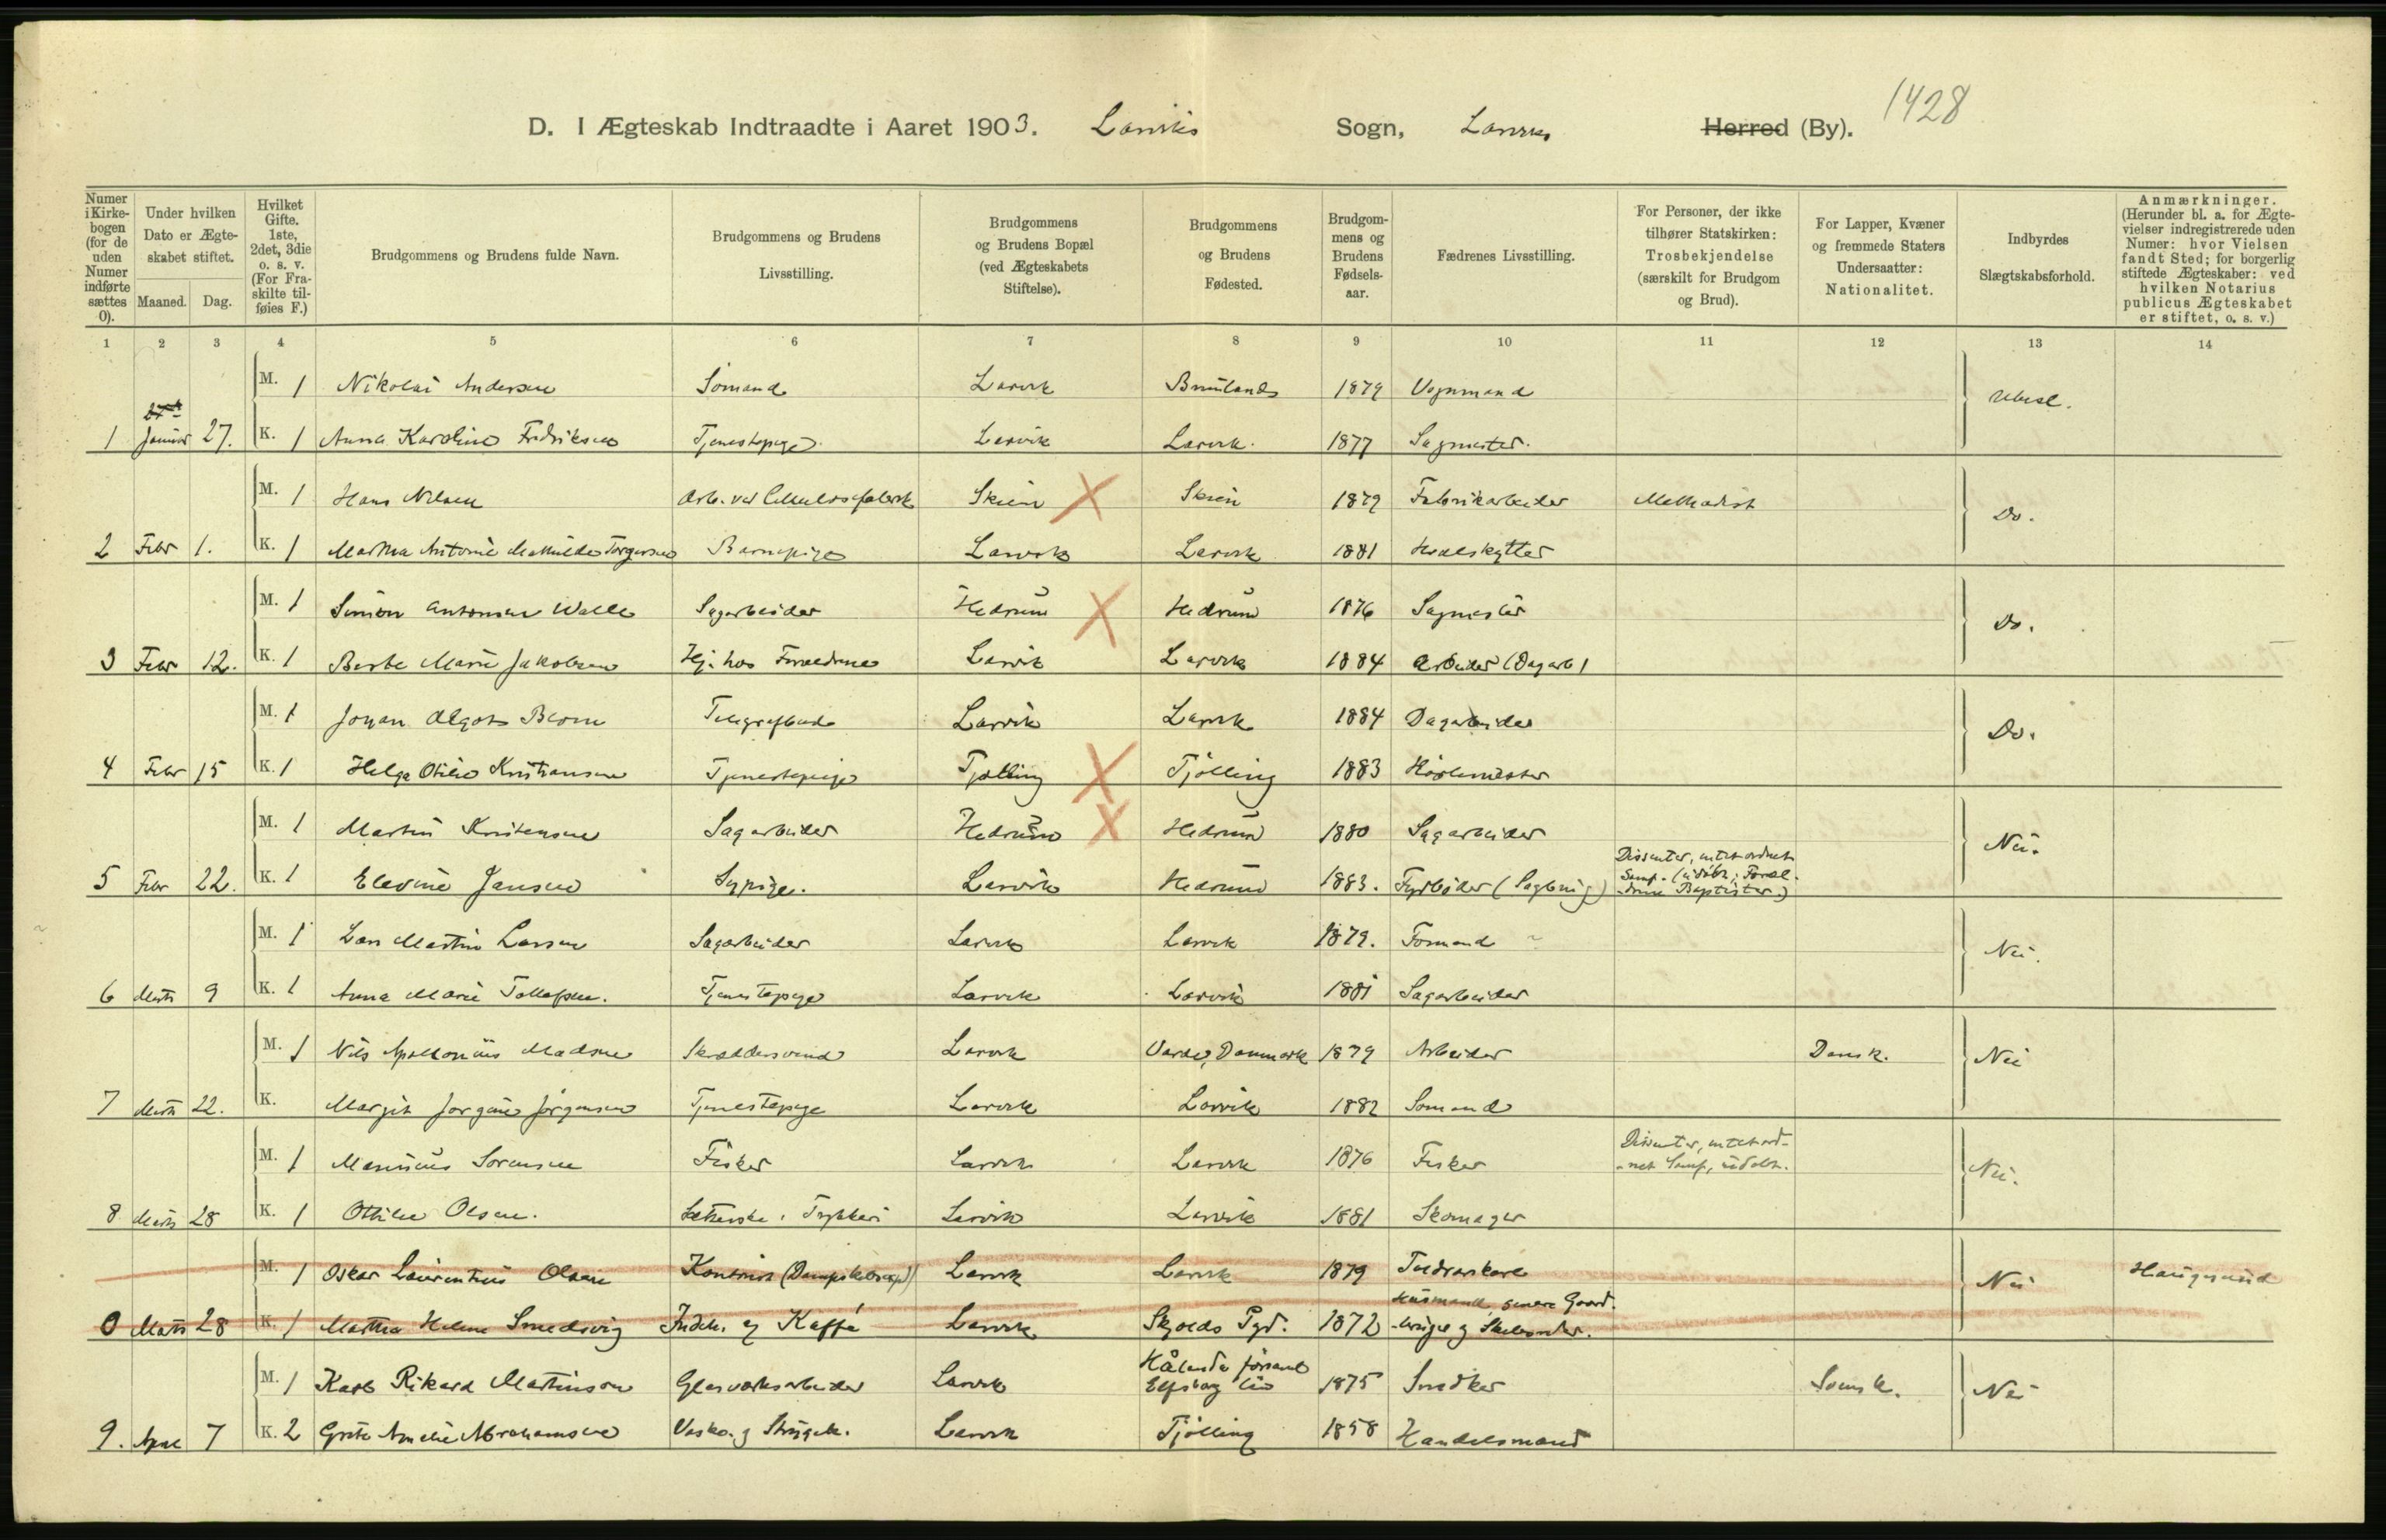 1428
D. I Ægteskab Indtraadte i Aaret 1903. Larviks Sogn, Larviks Herred (By).
Numer i Kirkebogen (for de uden Numer indførte sættes 0).
Under hvilken Dato er Ægteskabet stiftet.
Maaned. Dag.
Hvilket Gifte. 1ste, 2det, 3die o. s. v. (For Fraskilte tilføies F.)
Brudgommens og Brudens fulde Navn.
Brudgommens og Brudens Livsstilling.
Brudgommens og Brudens Bopæl (ved Ægteskabets Stiftelse).
Brudgommens og Brudens Fødested.
Brudgommens og Brudens Fødselsaar.
Fædrenes Livsstilling.
For Personer, der ikke tilhører Statskirken: Trosbekjendelse (særskilt for Brudgom og Brud).
For Lapper, Kvæner og fremmede Staters Undersaatter: Nationalitet.
Indbyrdes Slægtskabsforhold.
Anmærkninger. (Herunder bl. a. for Ægtevielser indregistrerede uden Numer: hvor Vielsen fandt Sted; for borgerlig stiftede Ægteskaber: ved hvilken Notarius publicus Ægteskabet er stiftet, o. s. v.)
1 2 3 4 5 6 7 8 9 10 11 12 13 14
M. 1 Nikolai Andersen Sømand Larvik Brunlands 1879 Vognmand Ubesl.
1 Januar 27. K. 1 Anna Karoline Fredriksen Tjenestepige Larvik Larvik. 1877 Sagmester.
M. 1 Hans Nilsen Arb. ved Cellulosefabrik Skien Skien 1879 Fabrikarbeider Methodist Do.
2 Febr 1. K. 1 Martha Antonie Mathilde Torgersen Barnepige Larvik Larvik 1881 Hvalskytter
M. 1 Simon Antonsen Walle Sagarbeider Hedrum Hedrum 1876 Sagmester Do.
3 Febr 12. K. 1 Berte Marie Jakobsen Hj. hos Forældrene Larvik Larvik 1884 Arbeider (Dagarb)
M. 1 Johan Algot Blom Telegrafbud Larvik Larvik 1884 Dagarbeider Do.
4 Febr 15 K. 1 Helga Otilie Kristiansen Tjenestepige Tjølling Tjølling 1883 Høvlemester
M. 1 Martin Kristensen Sagarbeider Hedrum Hedrum 1880 Sagarbeider Nei.
5 Febr 22. K. 1 Elevine Jansen Sypige. Larvik Hedrum 1883. Fyrbøder (Sagbrug) Dissenter, intet ordnet Samf. (udøbt; Forældrene Baptister)
M. 1 Lars Martin Larsen Sagarbeider Larvik Larvik 1879. Formand Nei.
6 Marts 9 K. 1 Anna Marie Tollefsen. Tjenestepige Larvik Larvik 1881 Sagarbeider
M. 1 Nils Apollonius Madsen Skræddersvend Larvik Varde, Danmark 1879 Arbeider Dansk. Nei
7 Marts 22. K. Margit Jørgine Jørgensen Tjenestepige Larvik Larvik 1882 Sømand
M. 1 Marinius Sørensen Fisker Larvik Larvik 1876 Fisker Dissenter, intet ordnet Samf., udøbt. Nei.
8 Marts 28 K. 1 Ottilie Olsen. Sætterske i Trykkeri Larvik Larvik 1881 Skomager
M. 1 Oskar Laurentius Olsen Kontorist (Dampskibsexp) Larvik Larvik 1879 Nei Haugesund
0 Marts 28 K. 1 Martha Helene Smedsvig Indeh. af Kaffé Larvik Skjolds Pgd. 1872 Husmand, senere Gaardbruger og
M. 1 Karl Rikard Martinsen Glasværksarbeider Larvik Elfsborg län 1875 Snedker Svensk. Nei
9. April 7 K. 2 Grete Amelie Abrahamsen Vaske- og Strygek. Larvik Tjølling 1858 Handelsmand